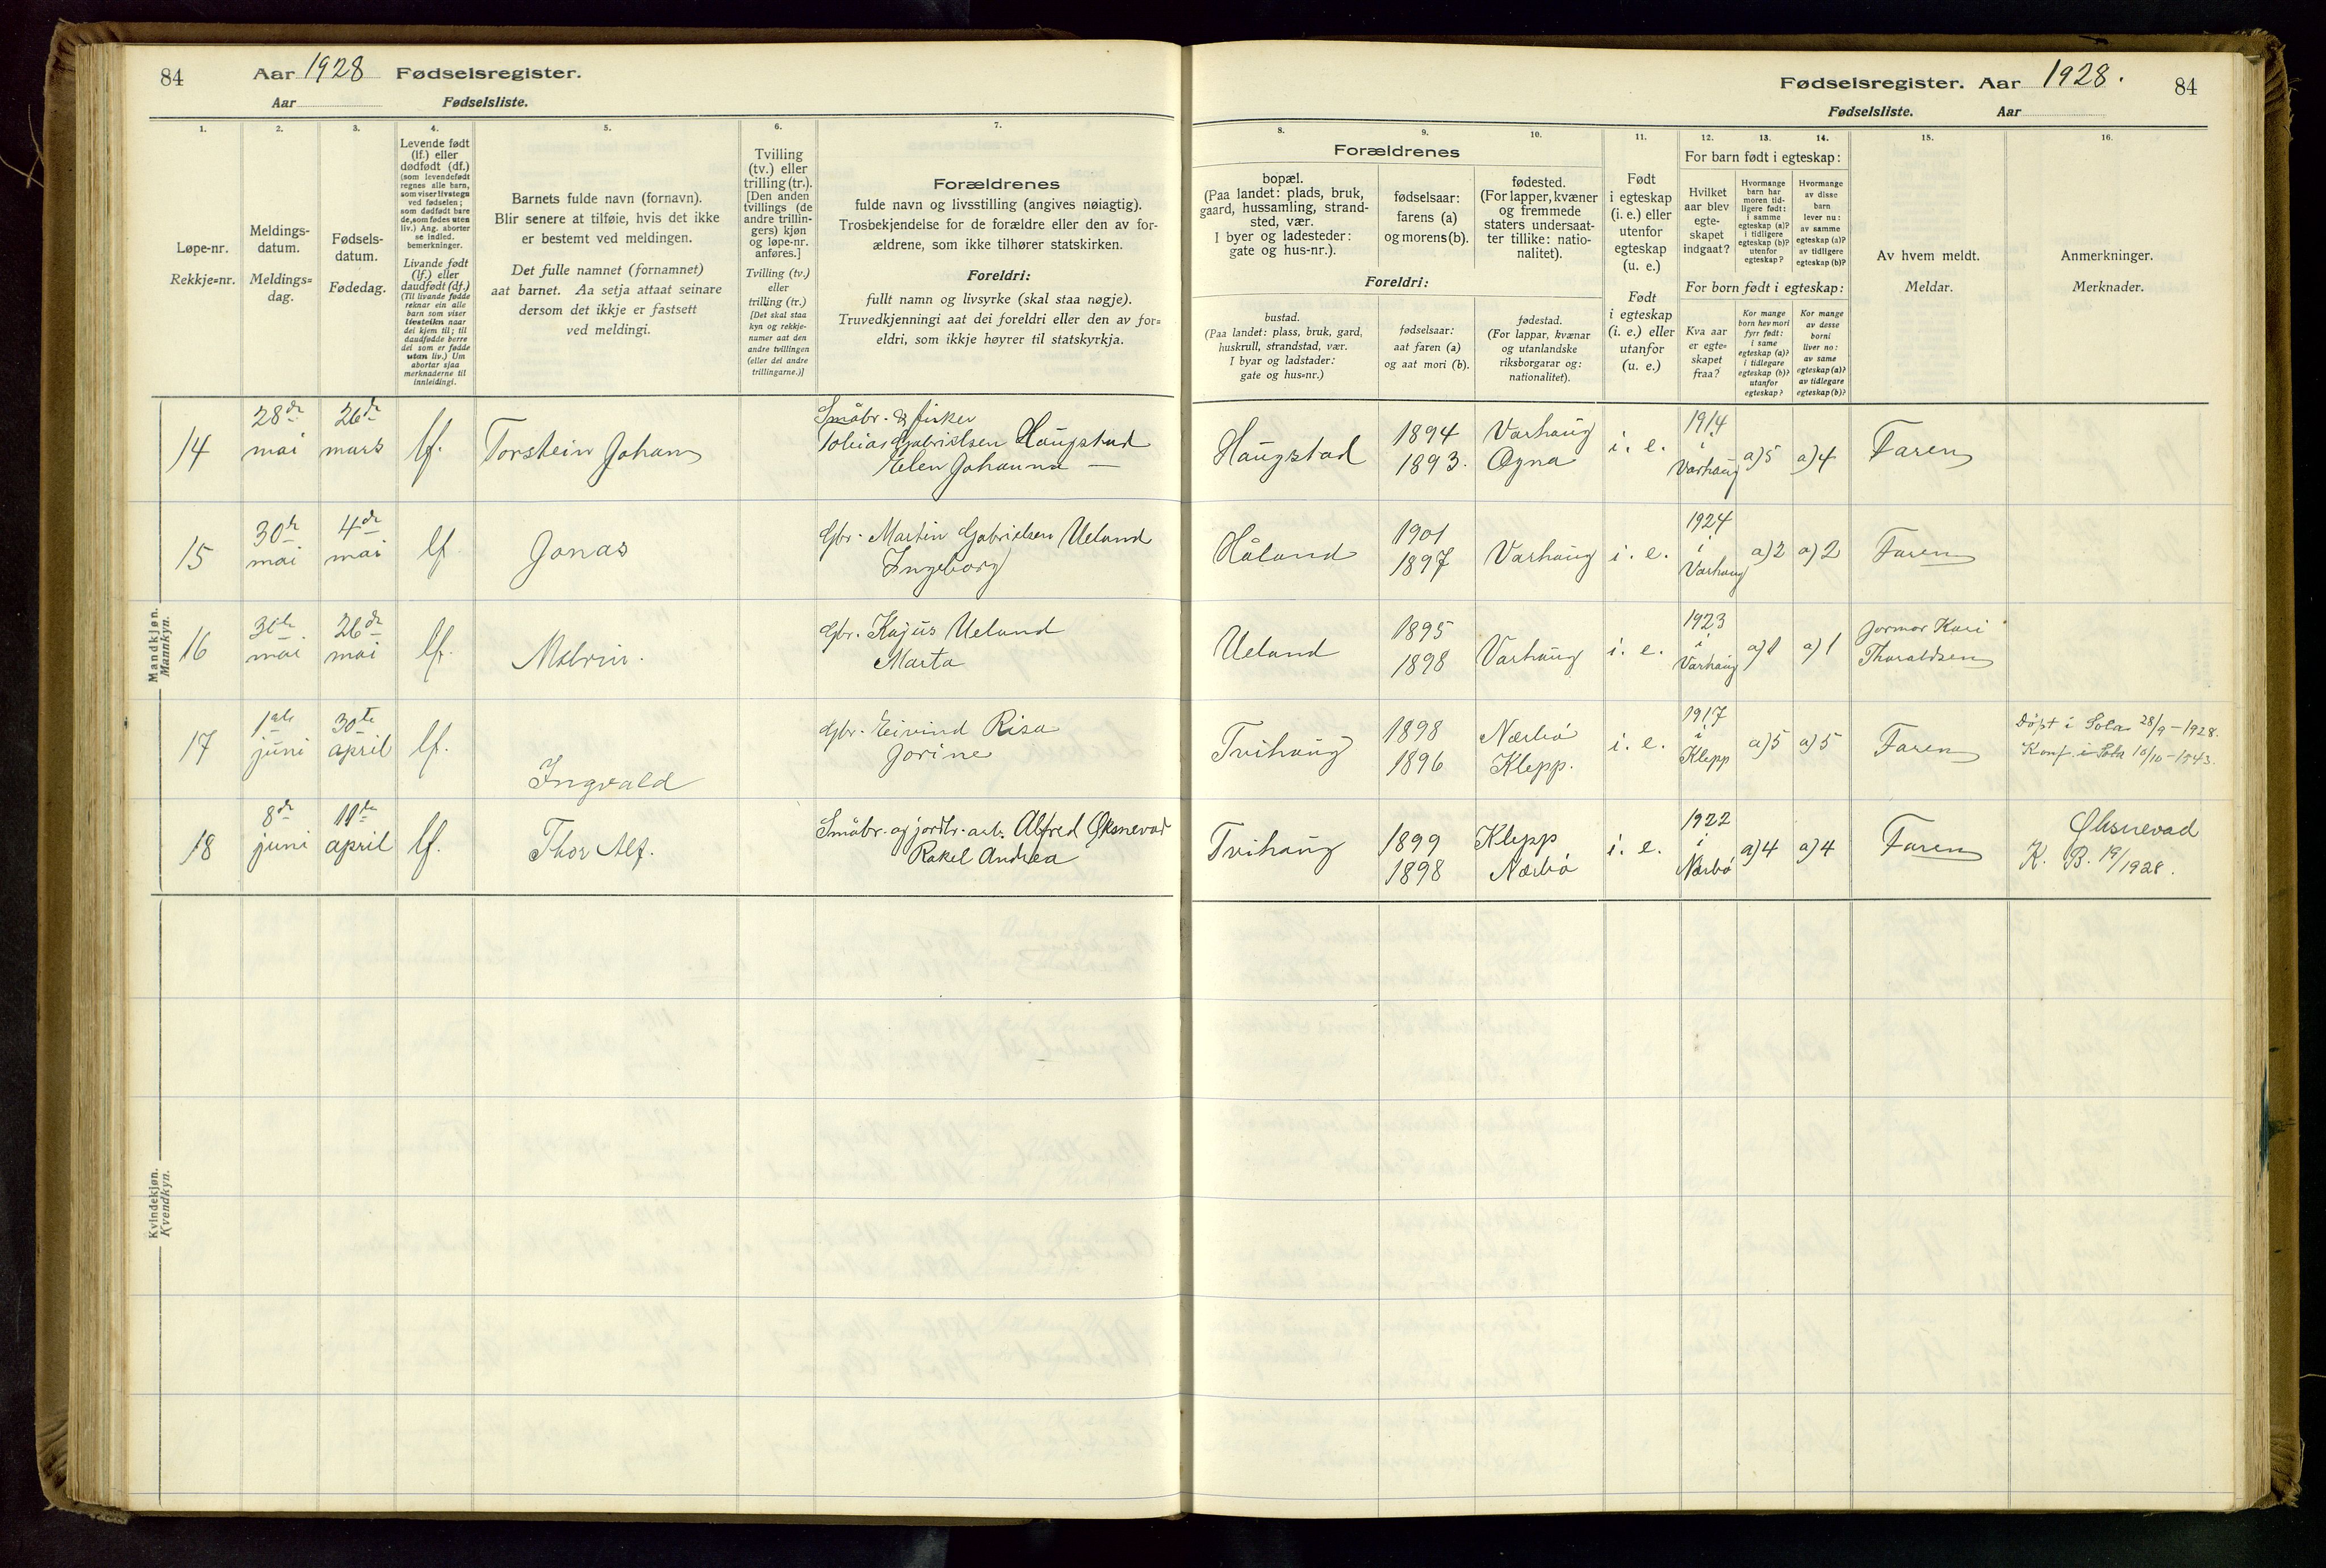 84 Aar 1928 Fødselsregister.
Aar Fødselsliste.
Fødselsregister. Aar 1928. 84
Fødselsliste. Aar
1.
Løpe-nr.
Rekkje=nr.
2.
Meldings-
datum.
Meldings=
dag.
3.
Fødsels-
datum.
Fødedag.
4.
Levende født
(lf.) eller
dødfødt (df.)
(som levendefødt
regnes alle barn,
som viser livstegn
ved fødselen;
som dødfødt bare
de, som fødes uten
liv.) Ang. aborter
se indled.
bemerkninger.
Livande født
(lf.) eller
daudfødt (df.)
(Til livande fødde
reknar ein alle
barn som viser
livsteikn naar
dei kjem til; til
daudfødde berre
dei som er fødde
utan liv.) Um
abortar sjaa
merknaderne til
innleidingi.
5.
Barnets fulde navn (fornavn).
Blir senere at tilføie, hvis det ikke
er bestemt ved meldingen.
Det fulle namnet (fornamnet)
aat barnet. Aa setja attaat seinare
dersom det ikkje er fastsett
ved meldingi.
6.
Tvilling
(tv.) eller
trilling (tr.).
[Den anden
tvillings (de
andre trillin-
gers) kjøn
og løpe-nr.
anføres.]
Tvilling (tv.)
eller
trilling (tr.)
[Det skal staa
kyn og rekkje-
numer aat den
andre tvillingen
(eller dei andre
trillingarne.)]
7.
Forældrenes
fulde navn og livsstilling (angives nøiagtig).
Trosbekjendelse for de forældre eller den av for-
ældrene, som ikke tilhører statskirken.
Foreldri:
fullt namn og livsyrke (skal staa nøgje).
Truvedkjenningi aat dei foreldri eller den av for=
eldri, som ikkje høyrer til statskyrkja.
8. 9. 10.
Forældrenes
bopæl.
(Paa landet: plads, bruk,
gaard, hussamling, strand-
sted, vær.
I byer og ladesteder:
gate og hus-nr.).
fødselsaar:
farens (a)
og morens (b).
fødested.
(For lapper, kvæner
og fremmede
staters undersaat-
ter tillike: natio-
nalitet).
Foreldri:
bustad.
(Paa landet: plass, bruk, gard,
huskrull, strandstad, vær.
I byar og ladstader:
gate og hus=nr.)
fødselsaar:
aat faren (a)
og aat mori (b).
fødestad.
(For lappar, kvænar
og utanlandske
riksborgarar og:
nationalitet).
11.
Født
i egteskap
(i. e.) eller
utenfor
egteskap
(u. e.)
Født
i egteskap
(i. e.) eller
utanfor
(u. e.)
12. 13. 14.
For barn født i egteskap:
Hvilket
aar blev
egte-
skapet
indgaat?
Hvormange
barn har
moren tid-
ligere født:
i samme
egteskap (a)?
i tidligere
egteskap (b)?
utenfor
egteskap?
Hvormange
av disse
barn
lever nu:
av samme
egteskap (a)?
av tidligere
egteskap (b)?
For born født i egteskap:
Kva aar
er egte=
skapet
fraa?
Kor mange
born hev mori
fyrr født:
i same
egteskap (a)?
i tidlegare
egteskap (b)?
utanfor
egteskap?
Kor mange
av desse
borni
liver no:
av same
egteskap (a)?
av tidlegare
egteskap (b)?
15.
Av hvem meldt.
Meldar.
16.
Anmerkninger.
Merknader.
Mandkjøn.
Mannkyn.
14 28de mai 26de mars lf. Torstein Johan
Småbr. & fisker
Tobias Gabrielsen Haugstad
Elen Johanna —
Haugstad 1894 1893. Varhaug Ogna i. e. 1914 i Varhaug a) 5 a) 4 Faren
15 30te mai 4de mai lf Jonas
Gbr. Martin Gabrielsen Ueland
Ingeborg
Håland 1901 1897 Varhaug i. e. 1924 i Varhaug a) 2 a) 2 Faren
16 mai 26de mai lf.
Gbr. Kajus Ueland
Marta
Ueland 1895 1898 Varhaug i. e. 1923 i Varhaug a) 1 a) 1 Jormor Kari
Tharaldsen
17 1ste juni 30te april lf. Ingvald
Gbr. Eivind Risa
Jorine
Tvihaug 1898 1896 Nærbø Klepp. i. e. 1917 i Klepp a) 5 a) 5 Faren
Døpt i Sola 28/9 – 1928.
Konf. i Sola 10/10 – 1943.
18 8de juni 11te april lf. Thor Alf.
Småbr. og jordbr. arb. Alfred Øksnevad
Rakel Andrea
Tvihaug 1899 1898 Klepp Nærbø i. e. 1922 i Nærbø a) 4 a) 4 Faren
Øksnevad
K. B. 19/1928.
Kvindekjøn.
Kvendkyn.